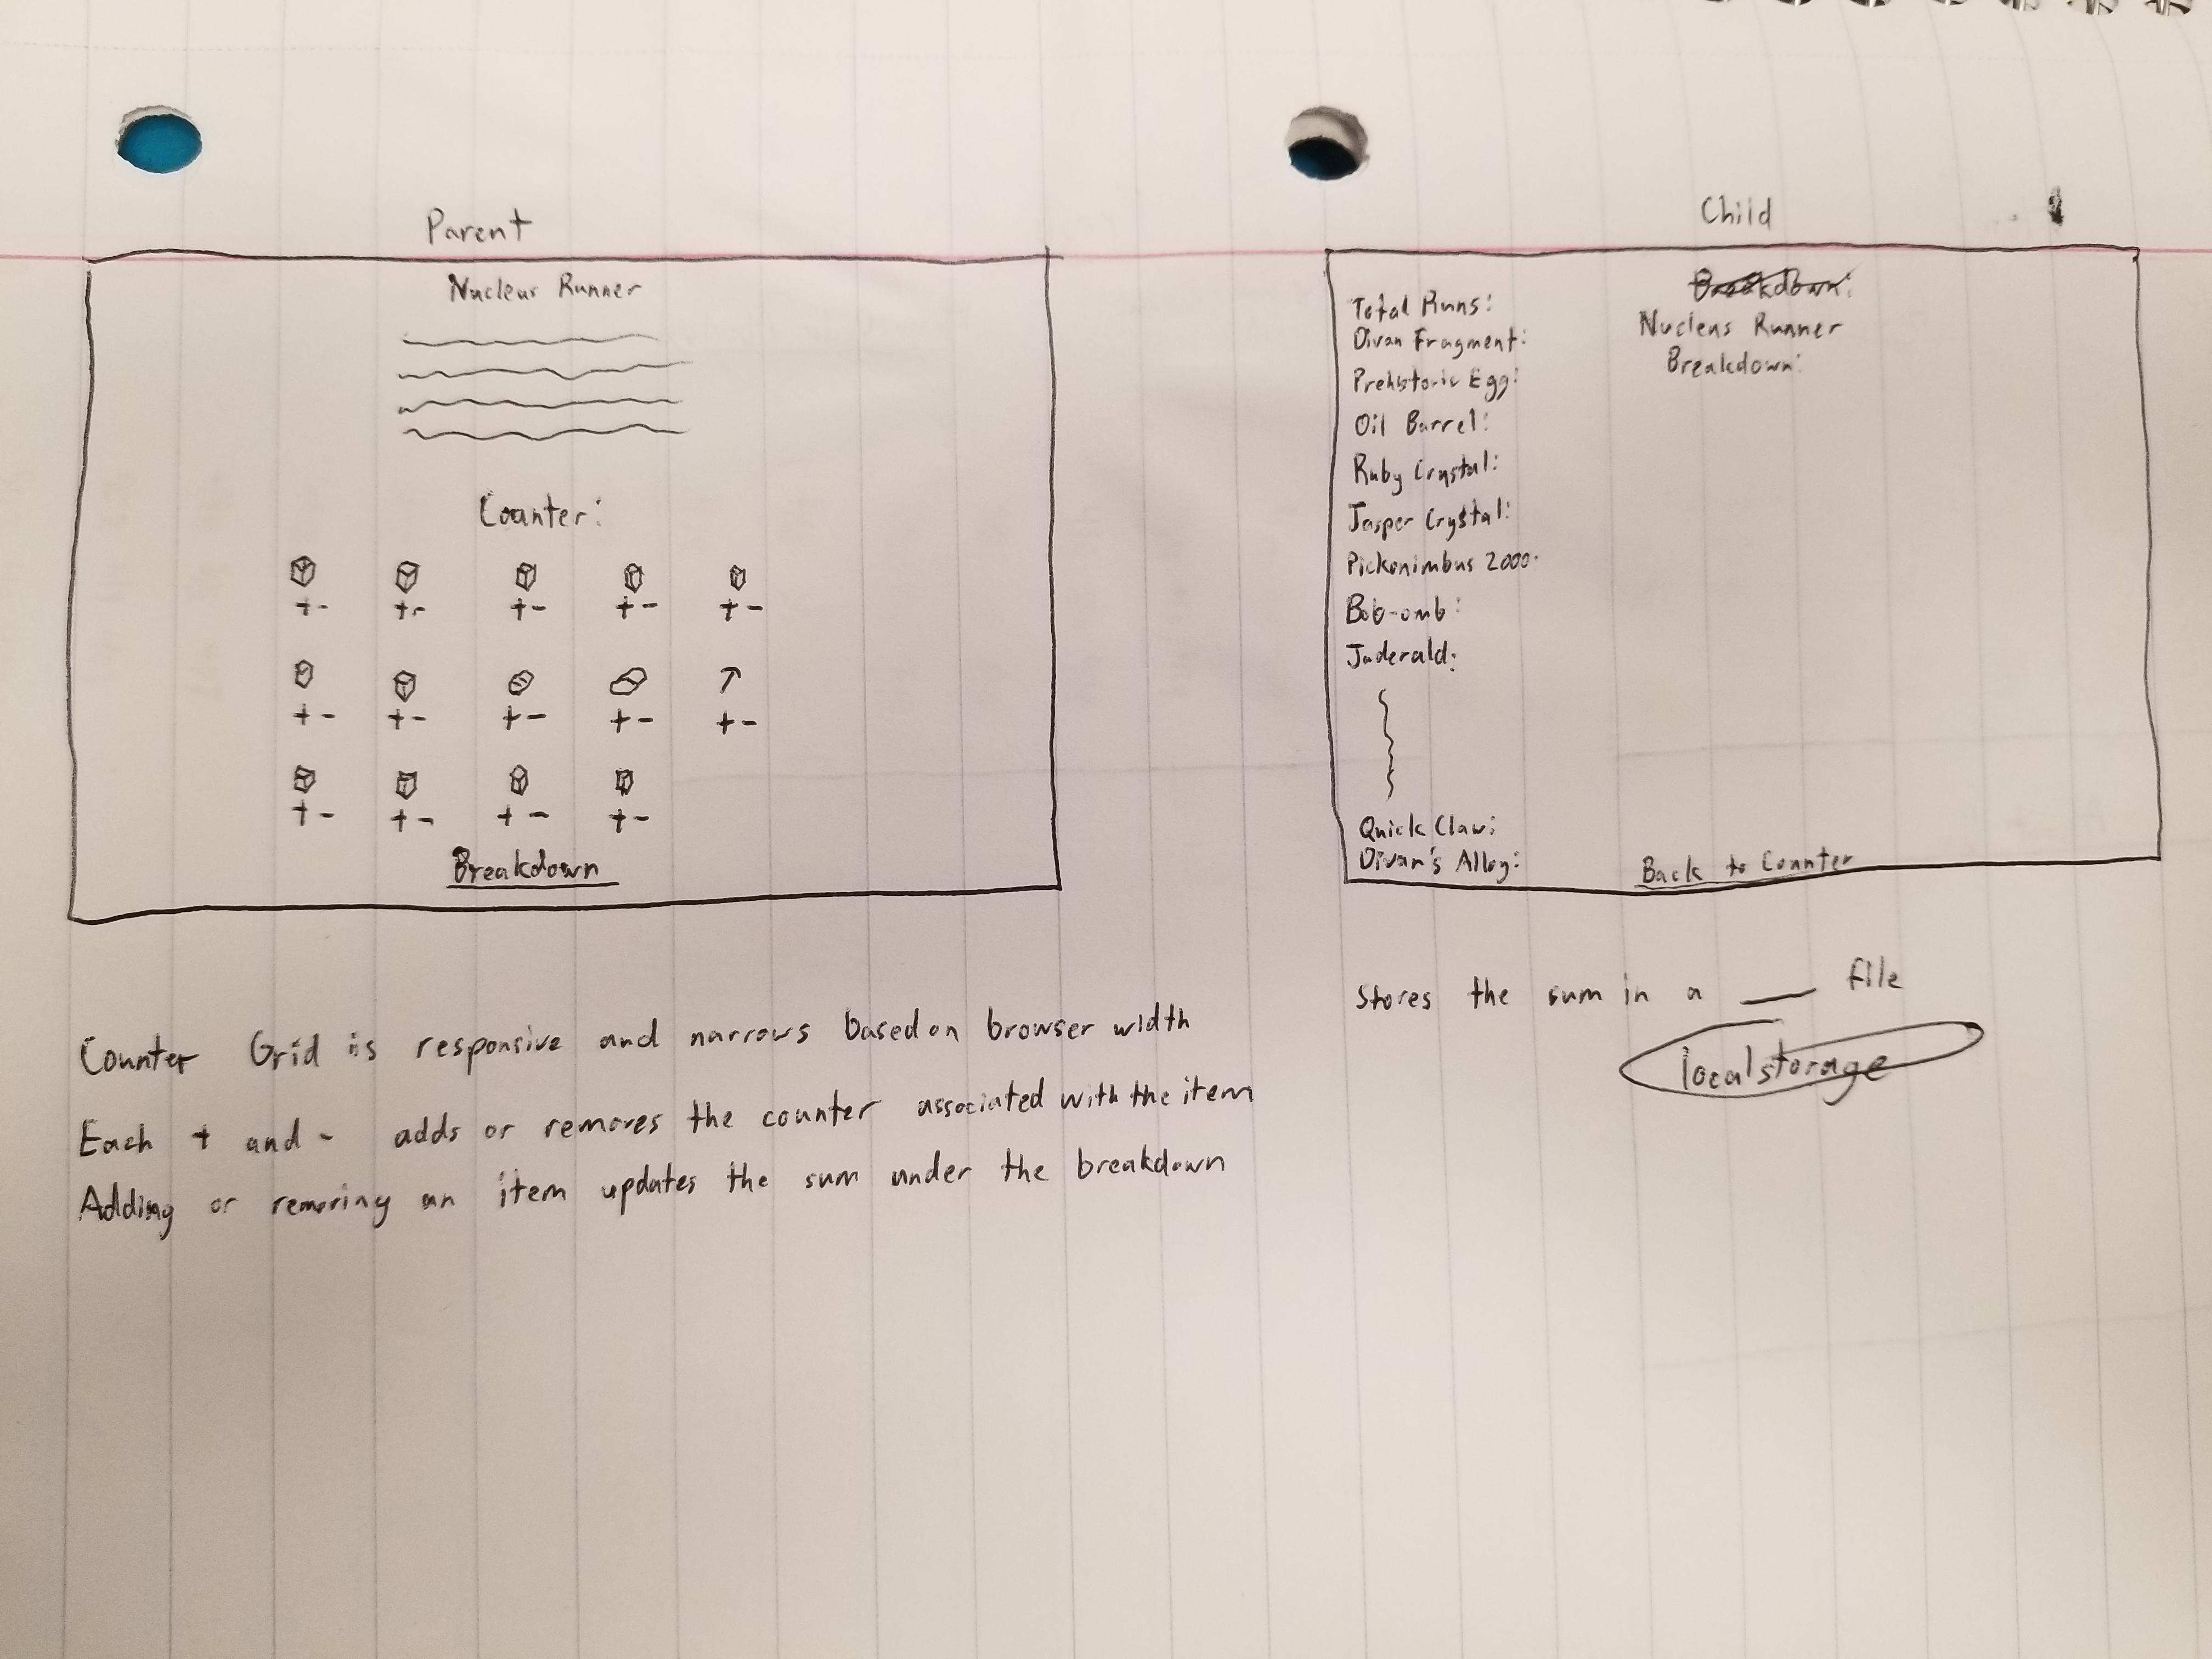 Parent
Nucleus Runner
Counter:
+ - + - + - + - + -
+ - + - + - + - + -
+ - + - + - + -
Breakdown
Counter Grid is responsive and narrows based on browser width
Each + and - adds or removes the counter associated with the item
Adding or removing an item updates the sum under the breakdown
Child
Breakdown:
Nucleus Runner
Breakdown:
Total Runs:
Divan Fragment:
Prehistoric Egg:
Oil Barrel:
Ruby Crystal:
Jasper Crystal:
Pickonimbus 2000:
Bob-omb:
Juderald:
Quick Claw:
Divan's Alloy:
Back to Counter
Stores the sum in a ___ file
localstorage